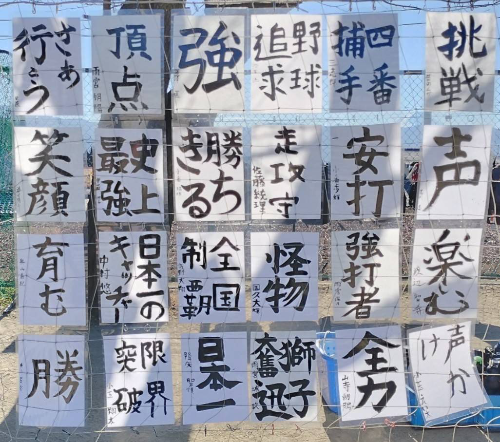 さあ
行こう
頂点
強
野球
追求
四番
捕手
挑戦
笑顔
史上
最強
勝ち
きる
走攻守
安打
声
育む
日本一の
キャッチャー
全国
制覇
怪物
強打者
楽しむ
勝
限界
突破
日本一
獅子
奮迅
全力
声か
け